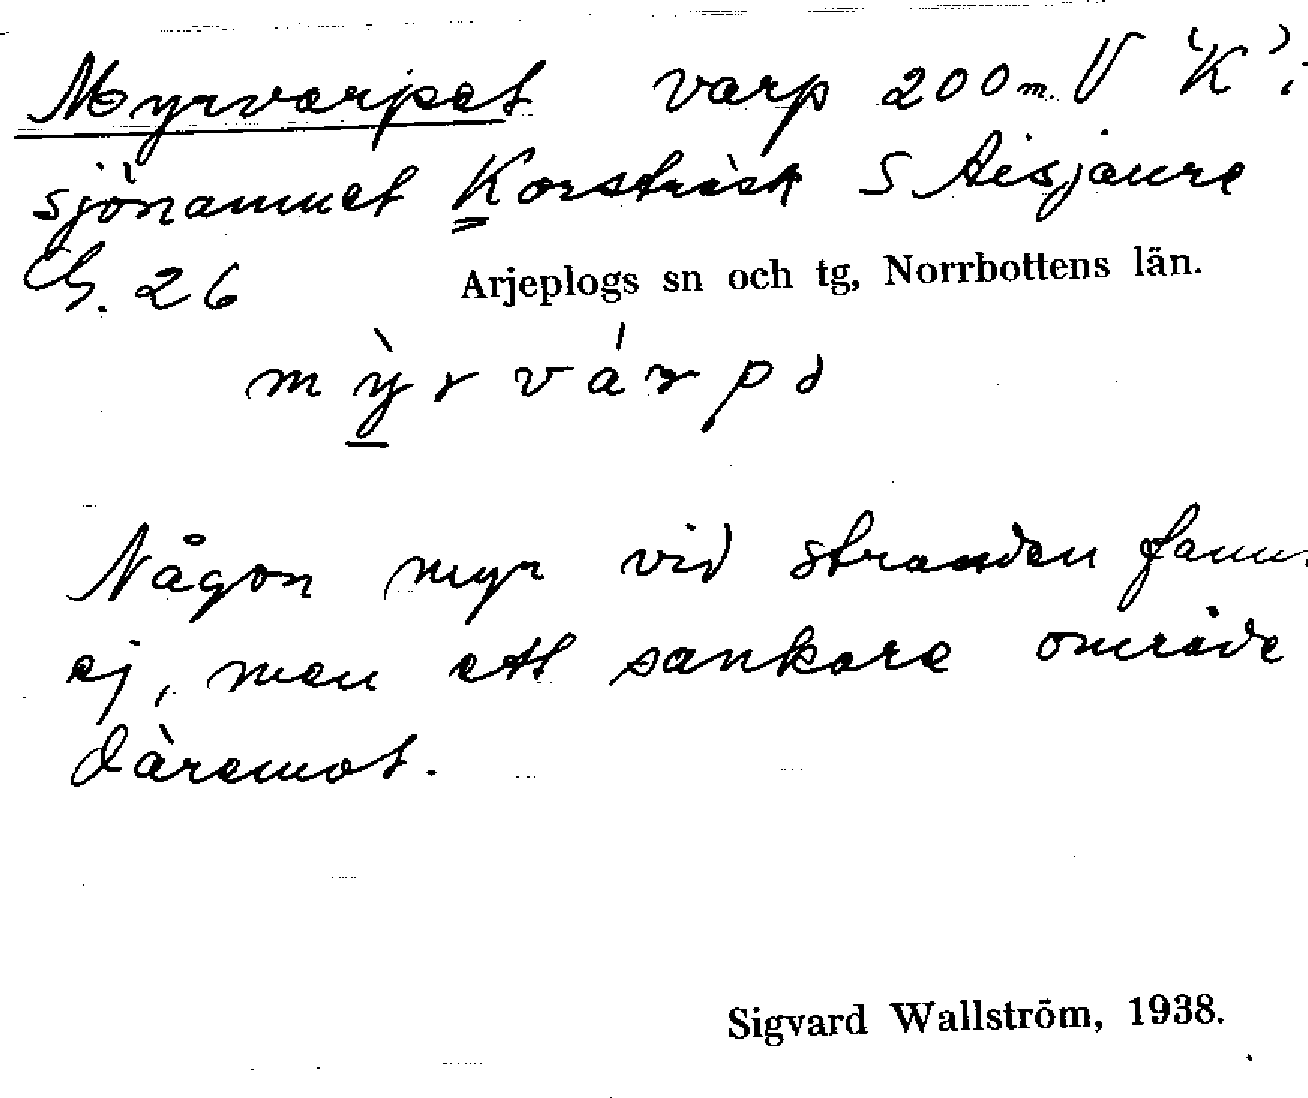 Myrvarpet varp 200 m. V 'K' i
sjönamnet Korsträsk S Aisjaure
26 Arjeplogs sn och tg, Norrbottens län.
Någon myr vid stranden fanns
ej, men ett sankare område
däremot.
Sigvard Wallström, 1938.